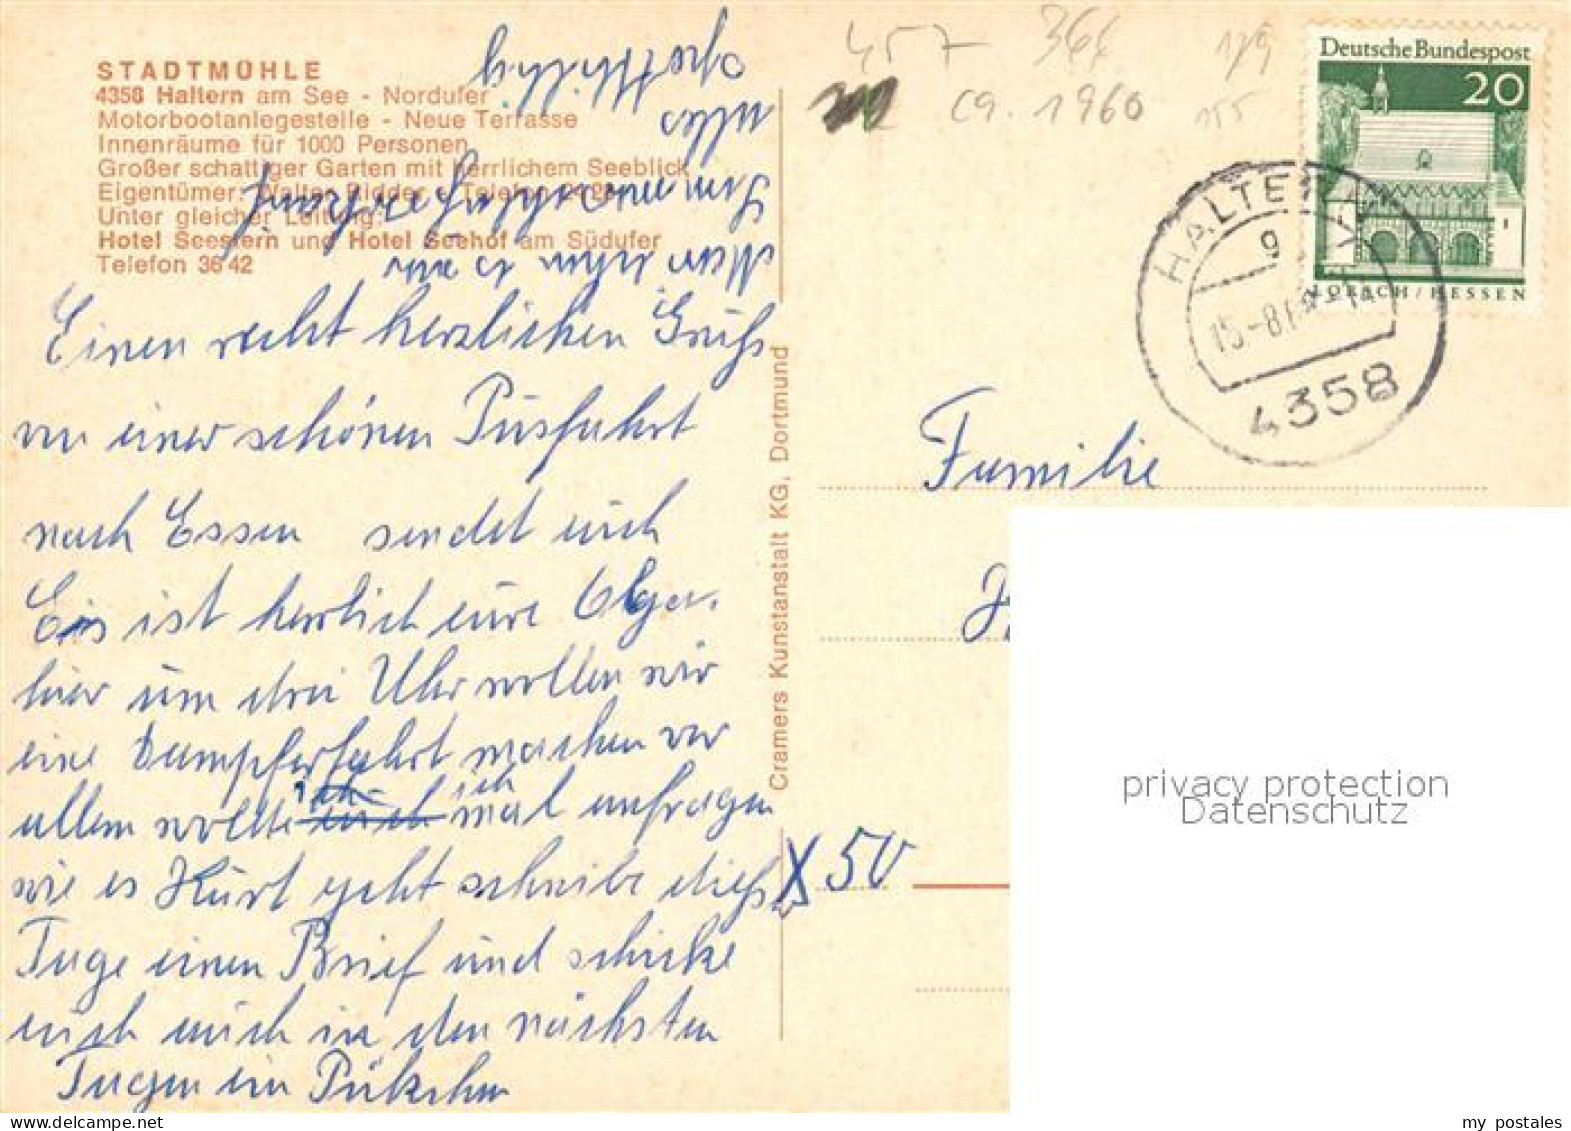 STADTMÜHLE
4358 Haltern am See - Nordufer
Motorbootanlegestelle - Neue Terrasse
Innenräume für 1000 Personen
Großer schattiger Garten mit herrlichem Seeblick
Eigentümer: Walter Ridder - Telefon
Unter gleicher Leitung:
Hotel Seestern und Hotel Seehof am Südufer
Telefon 36 42
Einen recht herzlichen Gruß
von einer schönen Ausfahrt
nach Essen sendet euch
Es ist herrlich eure Olga.
hier um drei Uhr wollen wir
eine Dampferfahrt machen vor
allem wollte ich mal anfragen
wie es Kurt geht schreibe diese
Tage einen Brief und schicke
euch auch in den nächsten
Tagen ein Päkchen
Cramers Kunstanstalt KG, Dortmund
457 366 129
ca. 1960 155
Deutsche Bundespost
20
LORSCH/HESSEN
HALTERN
g
15.-8.
4358
Familie
X 50
privacy protection
Datenschutz
my postales